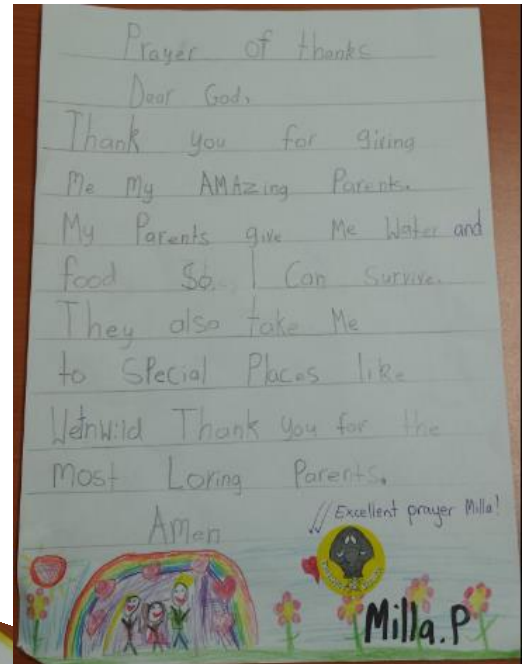 Prayer of thanks
Dear God,
Thank you for giving
Me My AMAzing Parents.
My Parents give Me Water and
food So I Can Survive.
They also take Me
to SPecial Places like
Wetnwild Thank you for the
Most Loving Parents.
Amen
Excellent prayer Milla!
Milla.P